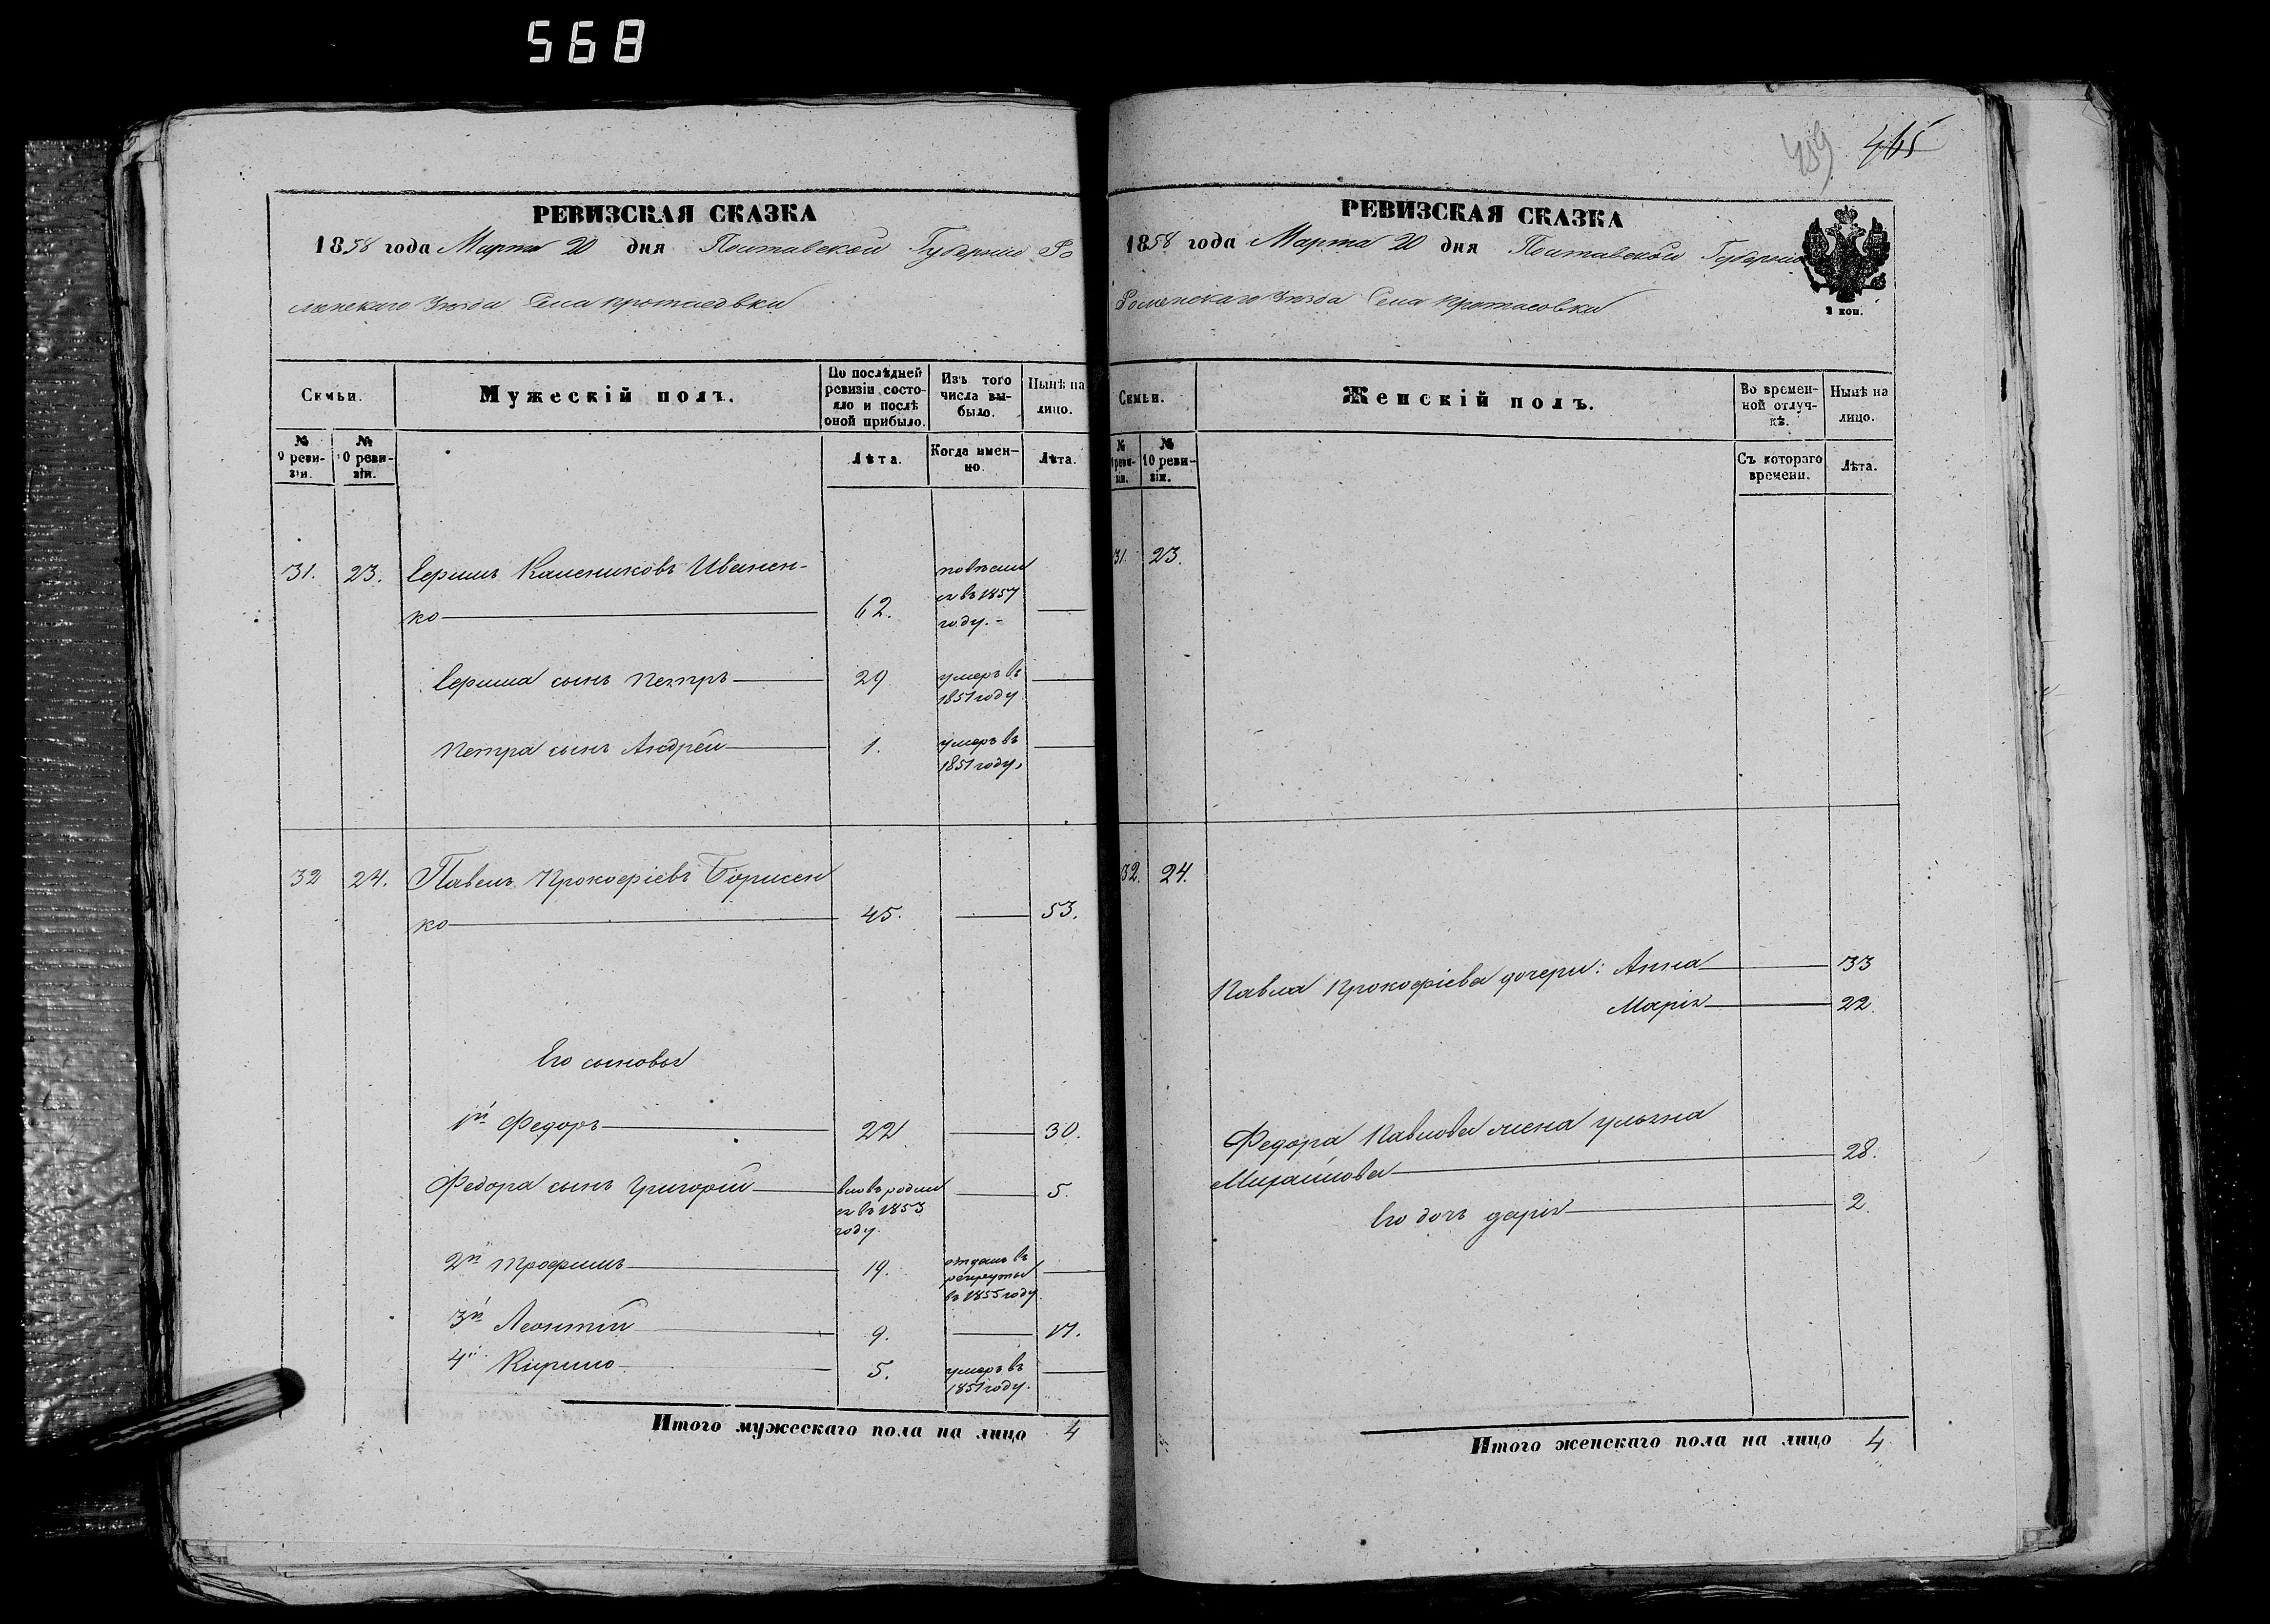 568
РЕВИЗСКАЯ СКАЗКА
1858 года Марта 20 дня Полтавской Губернии Ро
менскаго Уезда Села Протасовки
Семьи.
Мужескій полъ.
По послѣдней ревизіи состо-
яло и послѣ оной прибыло.
Изъ того числа вы-
было.
Нынѣ на лицо.
№ 9 реви-
зіи.
№ 10 реви-
зіи.
Лѣта.
Когда имен-
но.
Лѣта.
31. 23. Ерить Калениковъ Иванен-
ко 62.
года.
году.
сынъ Петръ 29 умеръ въ
1851 году.
Петра сынъ Андрей 1. умеръ въ
1851 году.
32 24. Павелъ Прокофіевъ Борисен
ко 45. 53.
Его сыновья
1й Федоръ 22 30.
Федора сынъ Григорій вновь родил
ся въ 1853 5.
году.
2й Трофимъ 19. отданъ въ
рекруты
въ 1855 году
3й Леонтій 9. 17.
4й Кирило 5. умеръ въ
1851 году.
Итого мужескаго пола на лицо 4
459 465
РЕВИЗСКАЯ СКАЗКА
1858 года Марта 20 дня Полтавской Губерніи
Роменскаго Уезда Села Протасовки
2 коп.
Семьи.
Женскій полъ.
Во времен-
ной отлуч-
кѣ.
Нынѣ на лицо.
№ 9 реви-
зіи.
№ 10 реви-
зіи.
Съ котораго времени.
Лѣта.
31. 23.
32. 24.
Павла Прокофіева дочери: Анна 33
Марія 22.
Федора Павлова жена Ульяна
Михайлова 28.
Его дочь Дарія 2.
Итого женскаго пола на лицо 4